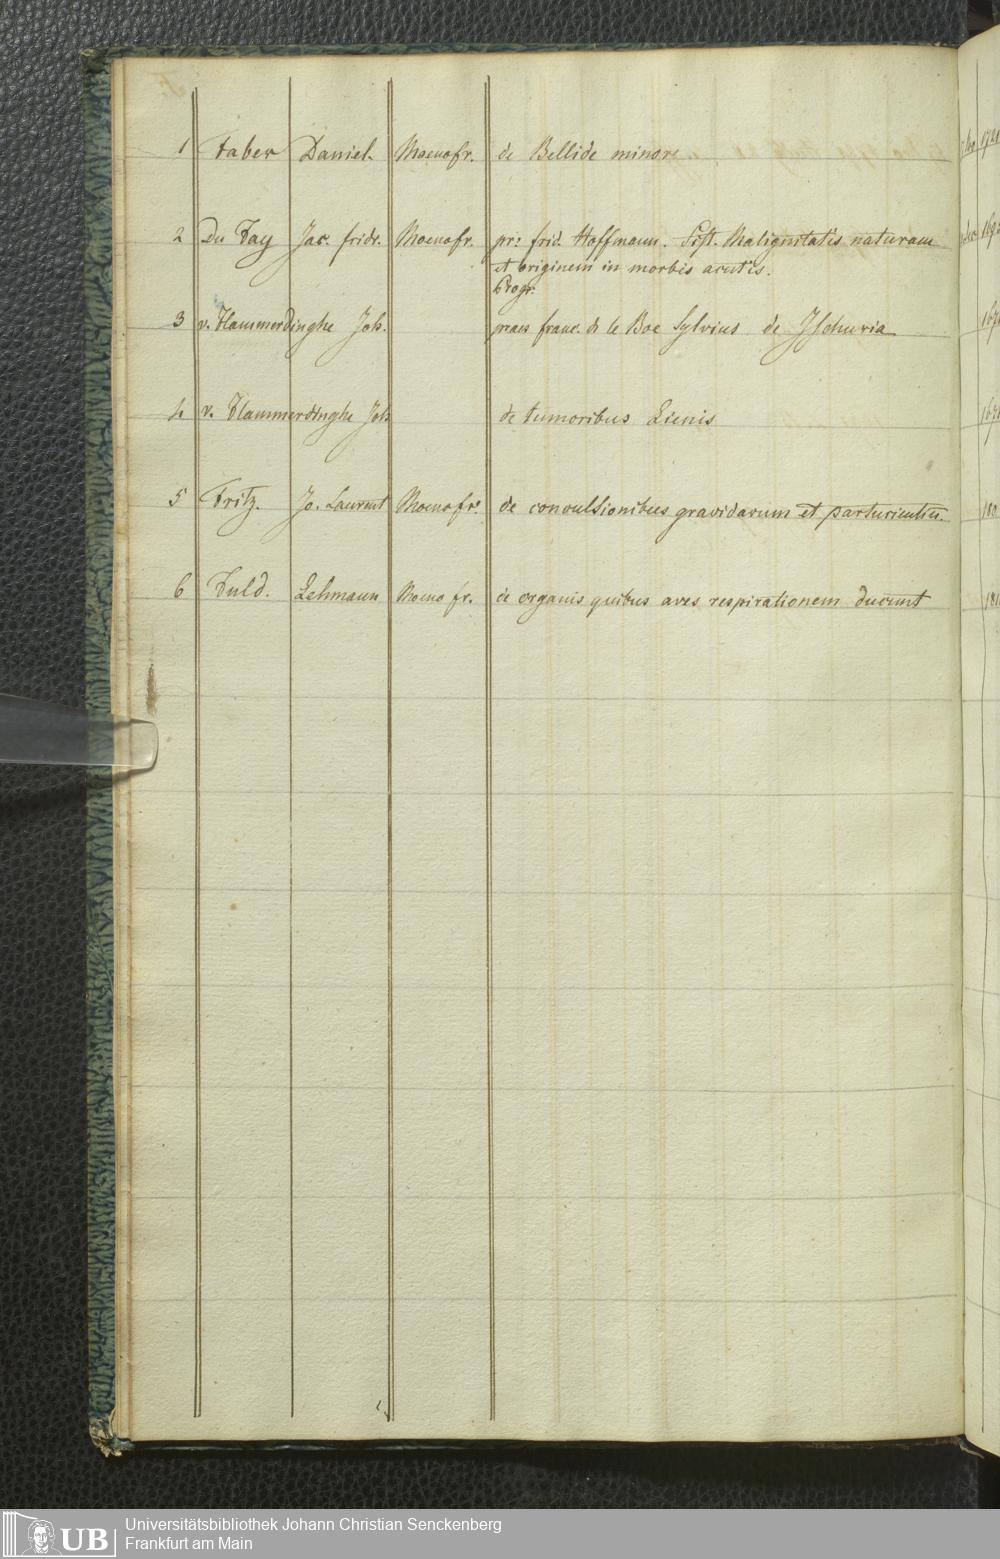 1 Faber Daniel. Moenofr. de Bellide minore
2 Du Fay Jac. fridr. Moenofr. pr: frid. Hoffmann. Sist. Malignitatis naturam
et originem in morbis acutis.
Progr.
3 v. Flammerdinghe Joh. praes franc. de le Boe Sylvius de Jschuria
4 v. Flammerdinghe Joh de tumoribus Lienis
5 Fritz. Jo. Laurent Moenofr. de convulsionibus gravidarum et parturientiu.
6 Fuld. Lehmann Moeno fr. de organis quibus aves respirationem ducunt
UB Universitätsbibliothek Johann Christian Senckenberg
Frankfurt am Main